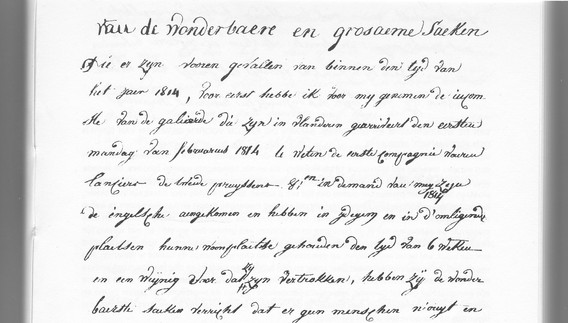 van de wonderbaere en grosaeme Saeken
Die er zyn voorn gevallen van binnen den tyd van
het jaer 1814, voor eerst hebbe ik voor my genomen de inkom
ste van de galieerde die zyn in vlanderen gearriveert den eersten
mandag van februarius 1814 te weten de eerste compagnie waeren
lanciers de twede pruyssens en in de maend van 1814
de ingelsche aengekomen en hebben in ydegem en in d'omligende
plaetsen hunne woonplaetse gehouden den tyd van 6 weken
en een weijnig voor dat zy zyn vertrokken, hebben zy de wonder
baerste saeken verricht dat er geen menschen nouyt en